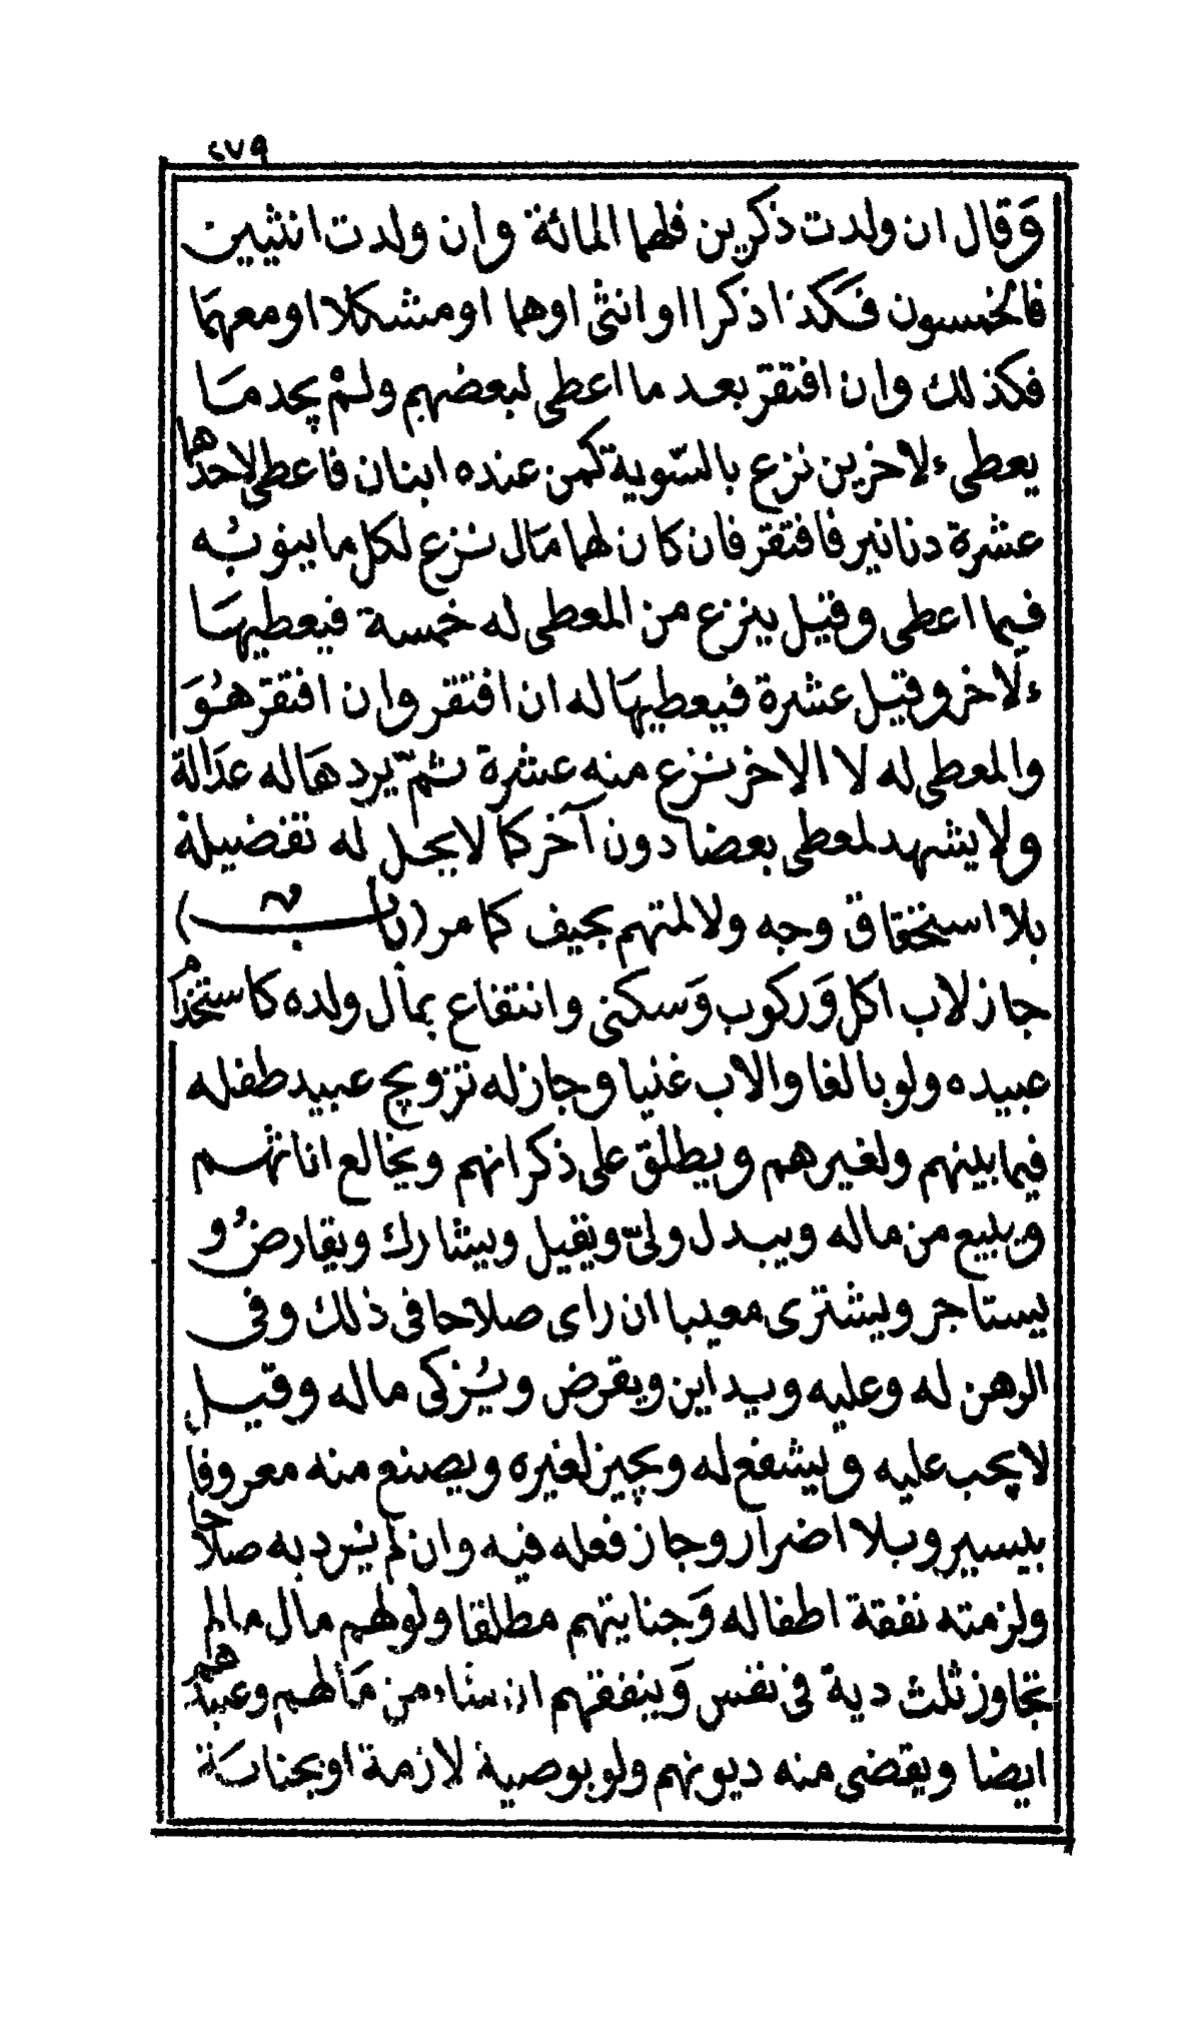 ٤٧٩
وَقال ان ولدت ذكرين فلهما المائة وان ولدت انثيين
فالخمسون فكذا ذكرا او انثى اوهما او مشكلا او معهما
فكذلك وان افتقر بعد ما اعطى لبعضهم ولمْ يجد مَا
يعطىء لاخرين نزع بالسّوية كمن عنده ابنان فاعطى لاحدهما
عشرة دنانير فافتقر فان كان لهما مَال نُزع لكل ما ينوبُه
فيما اعطى وقيل ينزع من المعطى له خمسة فيعطيهَا
ءلَاخر وقيل عشرة فيعطيهَا له ان افتقر وان افتقر هُوَ
والمعطى له لا الاخر نُزع منه عشرة ثمّ يردهَا له عدالة
ولا يشهد لمعطى بعضا دون آخر كما لا يحل له تفضيله
بلا استحقاق وجه ولا لمتهم بحيف كما مر (بابٌ)
جاز لاب اكل وَركوب وَسكنى وانتفاع بمال ولده كاستخدام
عبيده ولو بالغا والاب غنيا وجاز له تزويج عبيد طفله
فيما بينهم ولغيرهم ويطلق على ذكرانهم ويخالع اناثهم
ويبيع من ماله ويبدل ولىّ ويقيل ويشارك ويقارضُ و
يستاجر ويشترى معيبا ان راى صلاحا فى ذلك وفى
الرهن له وعليه ويداين ويقرض ويُزكى ماله وقيل
لا يجب عليه ويشفع له ويجيز لغيره ويصنع منه معروفا
بيسير وبلا اضرار وجاز فعله فيه وان لم يُرد به صلاحا
ولزمته نفقة اطفاله وَجنايتهم مطلقا ولو لهم مال مالم
تجاوز ثلث دية فى نفس وَينفقهم ان شاء من مَالهم وعبيدهم
ايضا ويقضى منه ديونهم ولو بوصية لازمة او بجنايَة